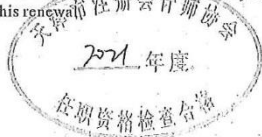 his renewal
天津市注册会计师协会
2021 年度
任职资格检查合格